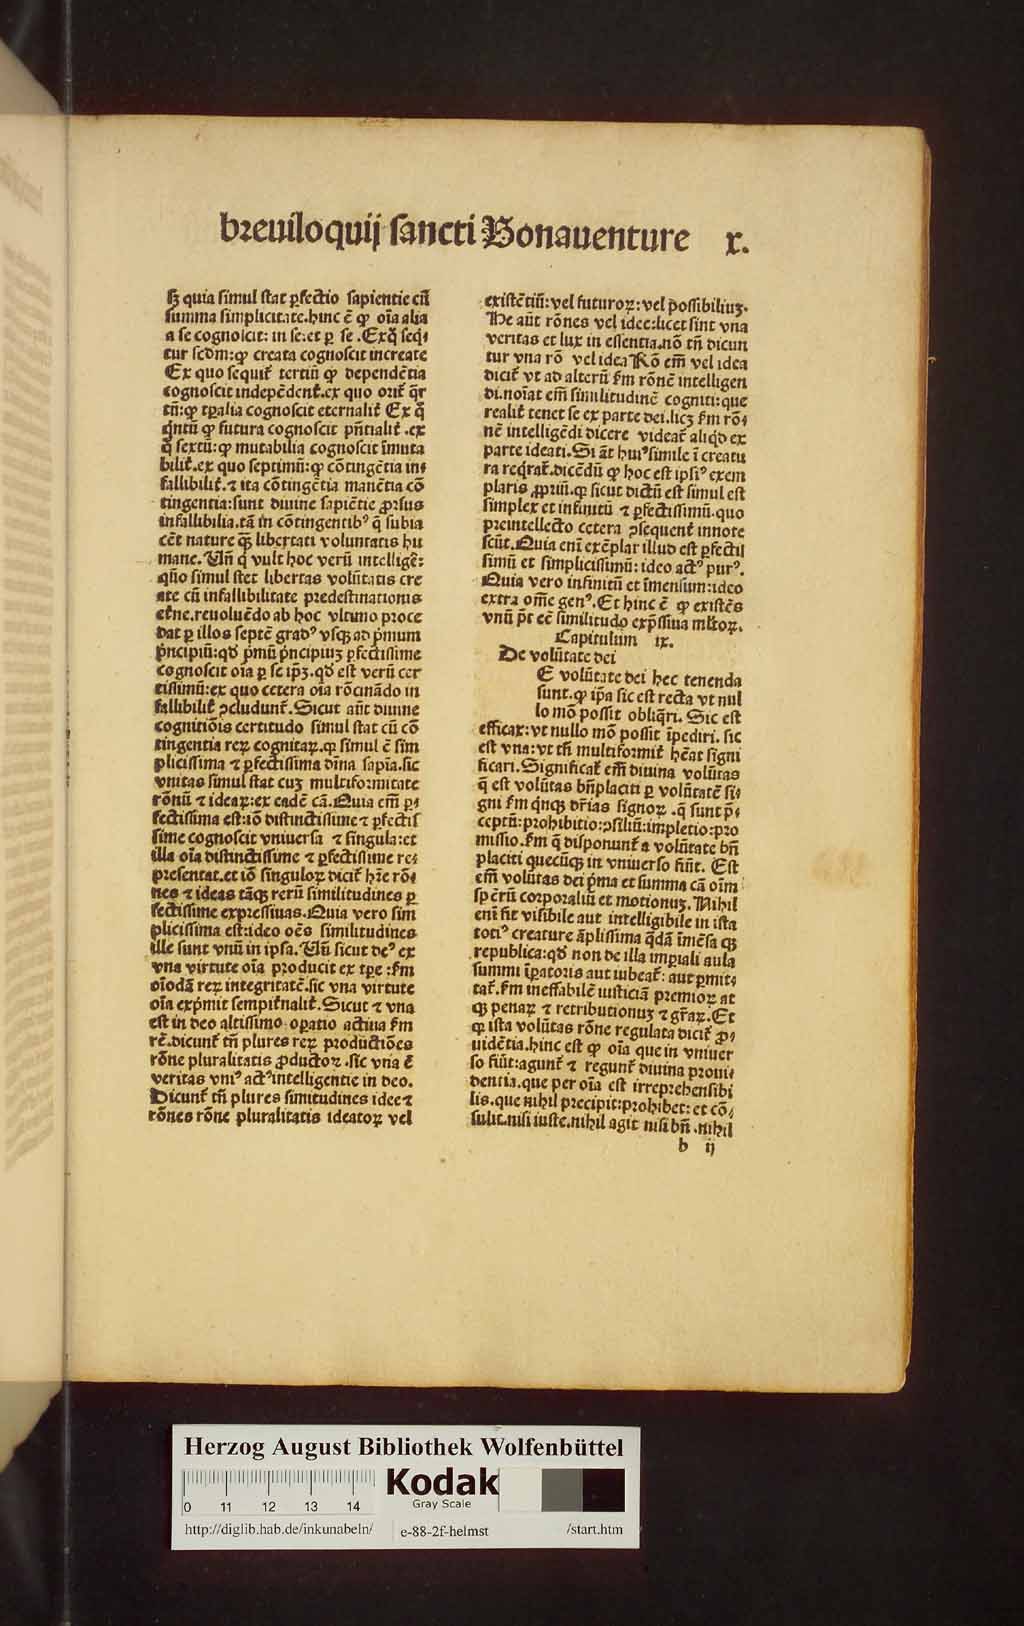 breuiloquij sancti Bonauenture x.
sꝫ quia simul stat ꝑfectio sapientie cū
summa simplicitate.hinc ē ꝙ oīa alia
a se cognoscit: in se:et ꝑ se .Exq̄ seq̄ꝛ
tur scḋm:ꝙ creata cognoscit increate
Ex quo sequit̄ tertiū ꝙ dependētia
cognoscit indepēdent̄.ex quo orit̄ q̄r
tū:ꝙ tꝑalia cognoscit eternalit̄ Ex q̄
q̇ntū ꝙ futura cognoscit pn̄tialit̄ .ex
q̄ sextū:ꝙ mutabilia cognoscit īmuta
bilit̄.ex quo septimū:ꝙ cōtingētia in⸗
fallibilit̄.⁊ ita cōtingētia manētia cō
tingentia:sunt diuine sapiētie ꝓrsus
infallibilia.tā in cōtingentibꝰ q̄ subia
cēt nature qꝫ̄ libertati voluntatis hu
mane. Uñ q̄ vult hoc verū intelligē:
qn̄o simul stet libertas volūtatis cre
ate cū infallibilitate predestinationis
et̄ne.reuoluēdo ab hoc vltimo proce
dat ꝑ illos septē gradꝰ vsqꝫ ad pͥmum
pͥncipiū:qḋ pͥmū pͥncipiuꝫ ꝑfectissime
cognoscit oīa ꝑ se ip̄ꝫ.qḋ est verū cer
tissimū:ex quo cetera oīa rōcinādo in
fallibilit̄ ꝯcludunt̄.Sicut aūt diuine
cognitiōis certitudo simul stat cū cō
tingentia reꝝ cognitaꝝ.ꝙ simul ē sim
plicissima ⁊ ꝑfectissima dīna sapīa.sic
vnitas simul stat cuꝫ multiformitate
rōnū ⁊ ideaꝝ:ex eadē cā.Quia em̄ ꝑ⸗
fectissima est:iō distinctissime ⁊ ꝑfectis
sime cognoscit vniuersa ⁊ singula:et
illa oīa distinctissime ⁊ ꝑfectissime re⸗
presentat.et iō singuloꝝ dicit̄ hr̄e rō⸗
nes ⁊ ideas tāqꝫ rerū similitudines ꝑ
fectissime expressiuas.Quia vero sim
plicissima est:ideo oēs similitudines
ille sunt vnū in ipsa. Uñ sicut deꝰ ex
vna virtute oīa producit ex tꝑe :fm
oīodā reꝝ integritatē.sic vna virtute
oīa expͥmit sempit̄nalit̄.Sicut ⁊ vna
est in deo altissimo oꝑatio actiua fm
rē.dicunt̄ tn̄ plures reꝝ productiōes
rōne pluralitatis ꝓductoꝝ .sic vna ē
veritas vniꝰ actꝰ intelligentie in deo.
Dicunt̄ tn̄ plures simitudines idee ⁊
rōnes rōne pluralitatis ideatoꝝ vel
existētiū: vel futuroꝝ: vel p̄ossibiliuꝫ.
De aūt rōnes vel idee:licet sint vna
veritas et lux in essentia.nō tn̄ dicun
tur vna rō vel idea Rō em̄ vel idea
dicit̄ vt ad alterū fm rōnē intelligen
di.noīat em̄ similitudinē cogniti: que
realit̄ tenet se ex parte dei.licꝫ fm rō⸗
nē intelligēdi dicere videat̄ aliqḋ ex
parte ideati.Si āt huiꝰ simile ī creatu
ra reqͥrat̄.dicēdū ꝙ hoc est ipsiꝰ exem
plaris ꝓpriū.ꝙ sicut dictū est simul est
simplex et infinitū ⁊ ꝑfectissimū.quo
preintellecto cetera ꝯsequent̄ innote
scūt.Quia eni exēplar illud est ꝑfectis
simū et simplicissimū: ideo actꝰ purꝰ.
Quia vero infinitū et īmensum:ideo
extra om̄e genꝰ.Et hinc ē ꝙ existēs
vnū pōt eē similitudo exp̄ssiua mltoꝝ.
Capitulum ix.
De volūtate dei
E volūtate dei hec tenenda
sunt.ꝙ ip̄a sic est recta vt nul
lo mō possit obliq̄ri. Sic est
efficax: vt nullo mō possit īpediri. sic
est vna: vt tn̄ multiformit̄ hēat signi
ficari.Significat̄ em̄ diuina volūtas
q̄ est volūtas bn̄placiti ꝑ volūtatē si⸗
gni fm qͥnqꝫ dr̄ias signoꝝ .q̄ sunt p̄⸗
ceptū:prohibitio:ꝯsiliū:impletio:pro
missio.fm q̄ disponunt̄ a volūtate bn̄
placiti quecūqꝫ in vniuerso fiūt. Est
em̄ volūtas dei pͥma et summa cā oīm
spērū corporaliū et motionuꝫ. Nihil
eni fit visibile aut intelligibile in ista
totiꝰ creature āplissima q̄dā īmēsa qꝫ
republica:qḋ non de illa imꝑiali aula
summi īꝑatoris aut iubeat̄: aut ꝑmit⸗
tat̄.fm ineffabilē iusticiā premioꝝ at
qꝫ penaꝝ ⁊ retributionuꝫ ⁊ gr̄aꝝ.Et
ꝙ ista volūtas rōne regulata dicit̄ ꝓ⸗
uidētia.hinc est ꝙ oīa que in vniuer
so fiūt:agunt̄ ⁊ regunt̄ diuina proui⸗
dentia.que per oīa est irreprehensibi
lis.que nihil precipit:prohibet: et cō⸗
sulit.nisi iuste.nihil agit nisi bn̄ .nihil
b ij
Herzog August Bibliothek Wolfenbüttel
0 11 12 13 14
Kodak
Gray Scale
http://diglib.hab.de/inkunabeln/ e-88-2f-helmst /start.htm